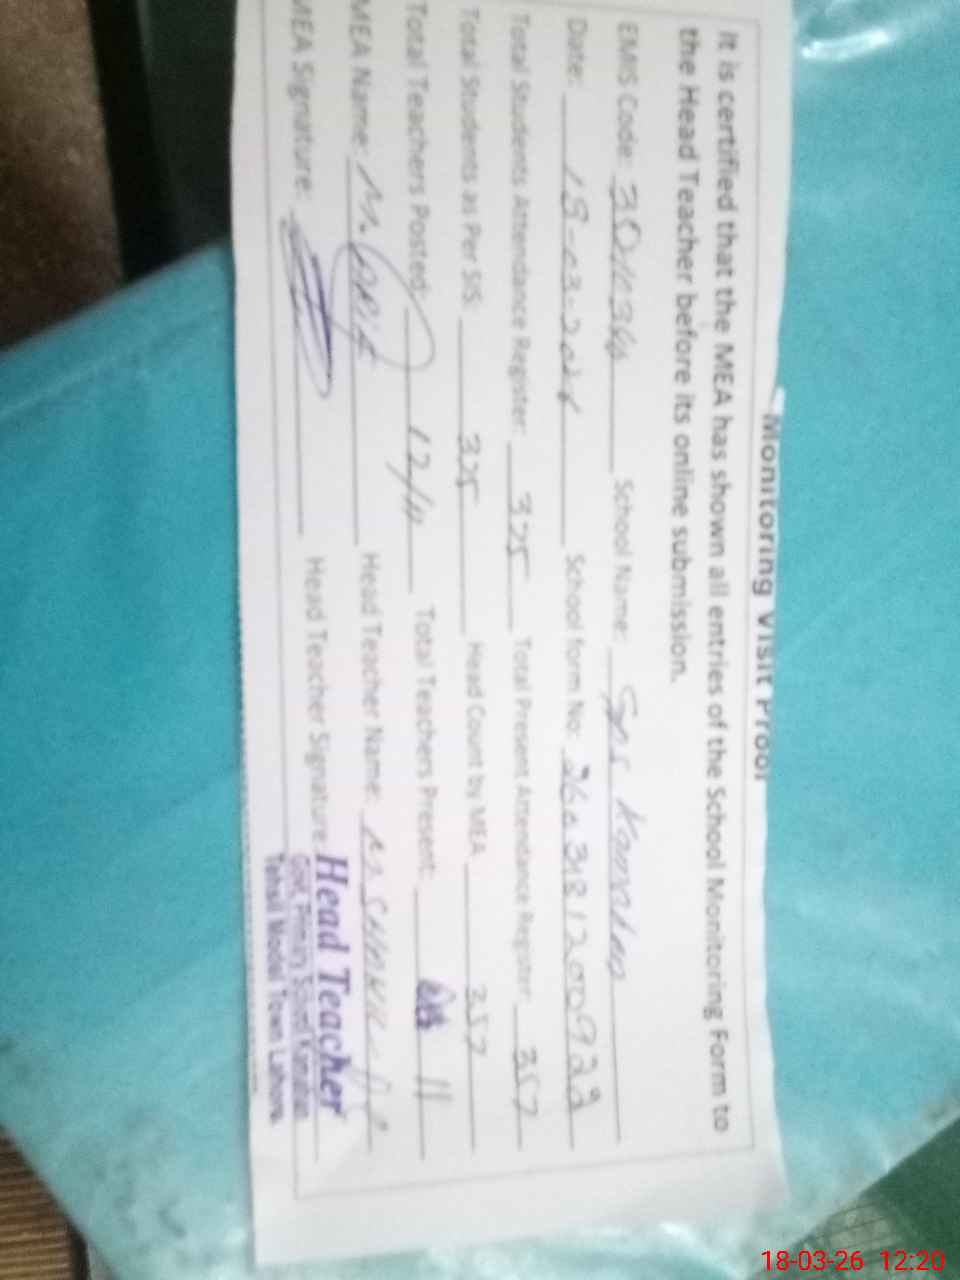 Monitoring Visit Proof
It is certified that the MEA has shown all entries of the School Monitoring Form to
the Head Teacher before its online submission.
EMIS Code: School Name: GPS Kamahan
Date: 18-03-2026 School form No:
Total Students Attendance Register: 375 Total Present Attendance Register: 357
Total Students as Per SIS: 375 Head Count by MEA 357
Total Teachers Posted: 12/11 Total Teachers Present: 11
MEA Name: M. Head Teacher Name:
MEA Signature: Head Teacher Signature:
Head Teacher
Govt. Primary School Kamahan
Tehsil Model Town Lahore.
18-03-26 12:20